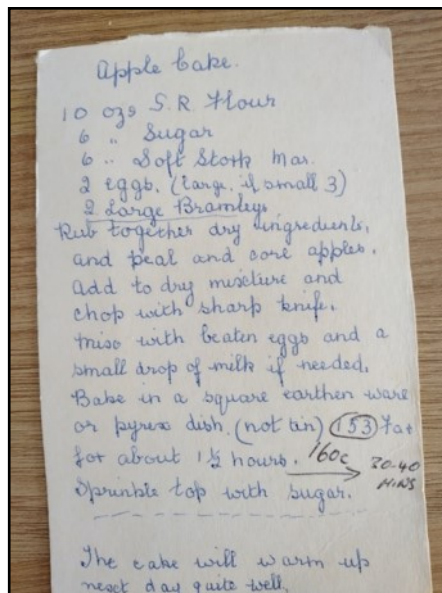 Apple Cake.
10 ozs S.R. Flour
6 " Sugar
6 " Soft Stork Mar.
2 eggs. (large. if small 3)
2 Large Bramleys
Rub together dry ingredients,
and peal and core apples.
Add to dry mixture and
chop with sharp knife.
Mix with beaten eggs and a
small drop of milk if needed.
Bake in a square earthen ware
or pyrex dish. (not tin) 153 Fat
for about 1½ hours. 160c 30-40
MINS
Sprinkle top with sugar.
The cake will warm up
next day quite well.